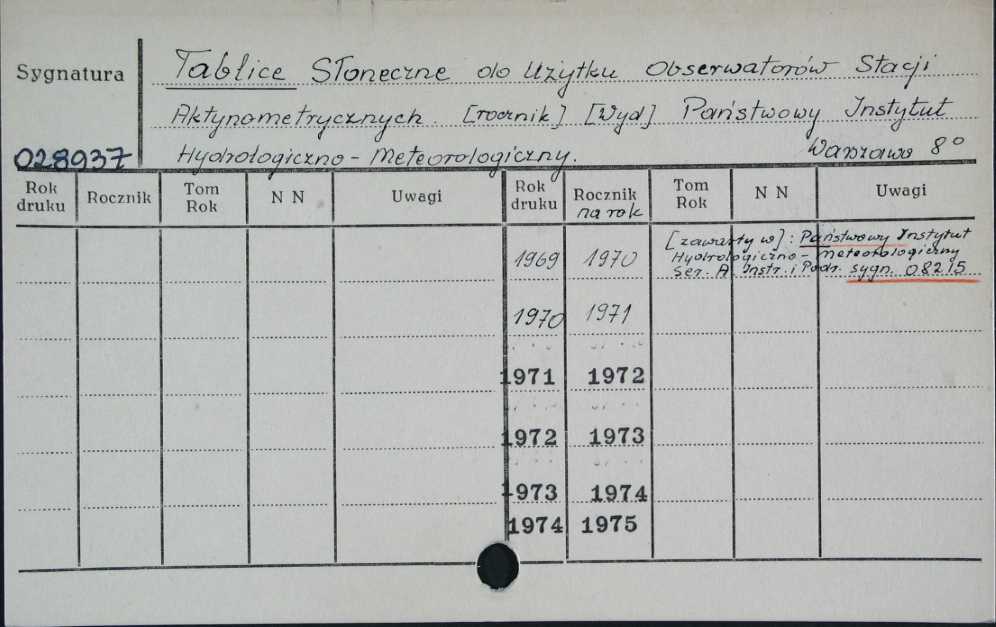 Sygnatura
Tablice Słoneczne do Użytku Obserwatorów Stacji
Aktynometrycznych. [rocznik] [Wyd] Państwowy Instytut
028937 Hydrologiczno-Meteorologiczny. Warszawa 8°
Rok druku Rocznik Tom Rok N N Uwagi Rok druku Rocznik na rok Tom Rok N N Uwagi
1969 1970 [zawarty w]: Państwowy Instytut
Hydrologiczno-Meteorologiczny
Ser. A. Instr. i Podr. sygn. 08215
1970 1971
1971 1972
1972 1973
1973 1974
1974 1975